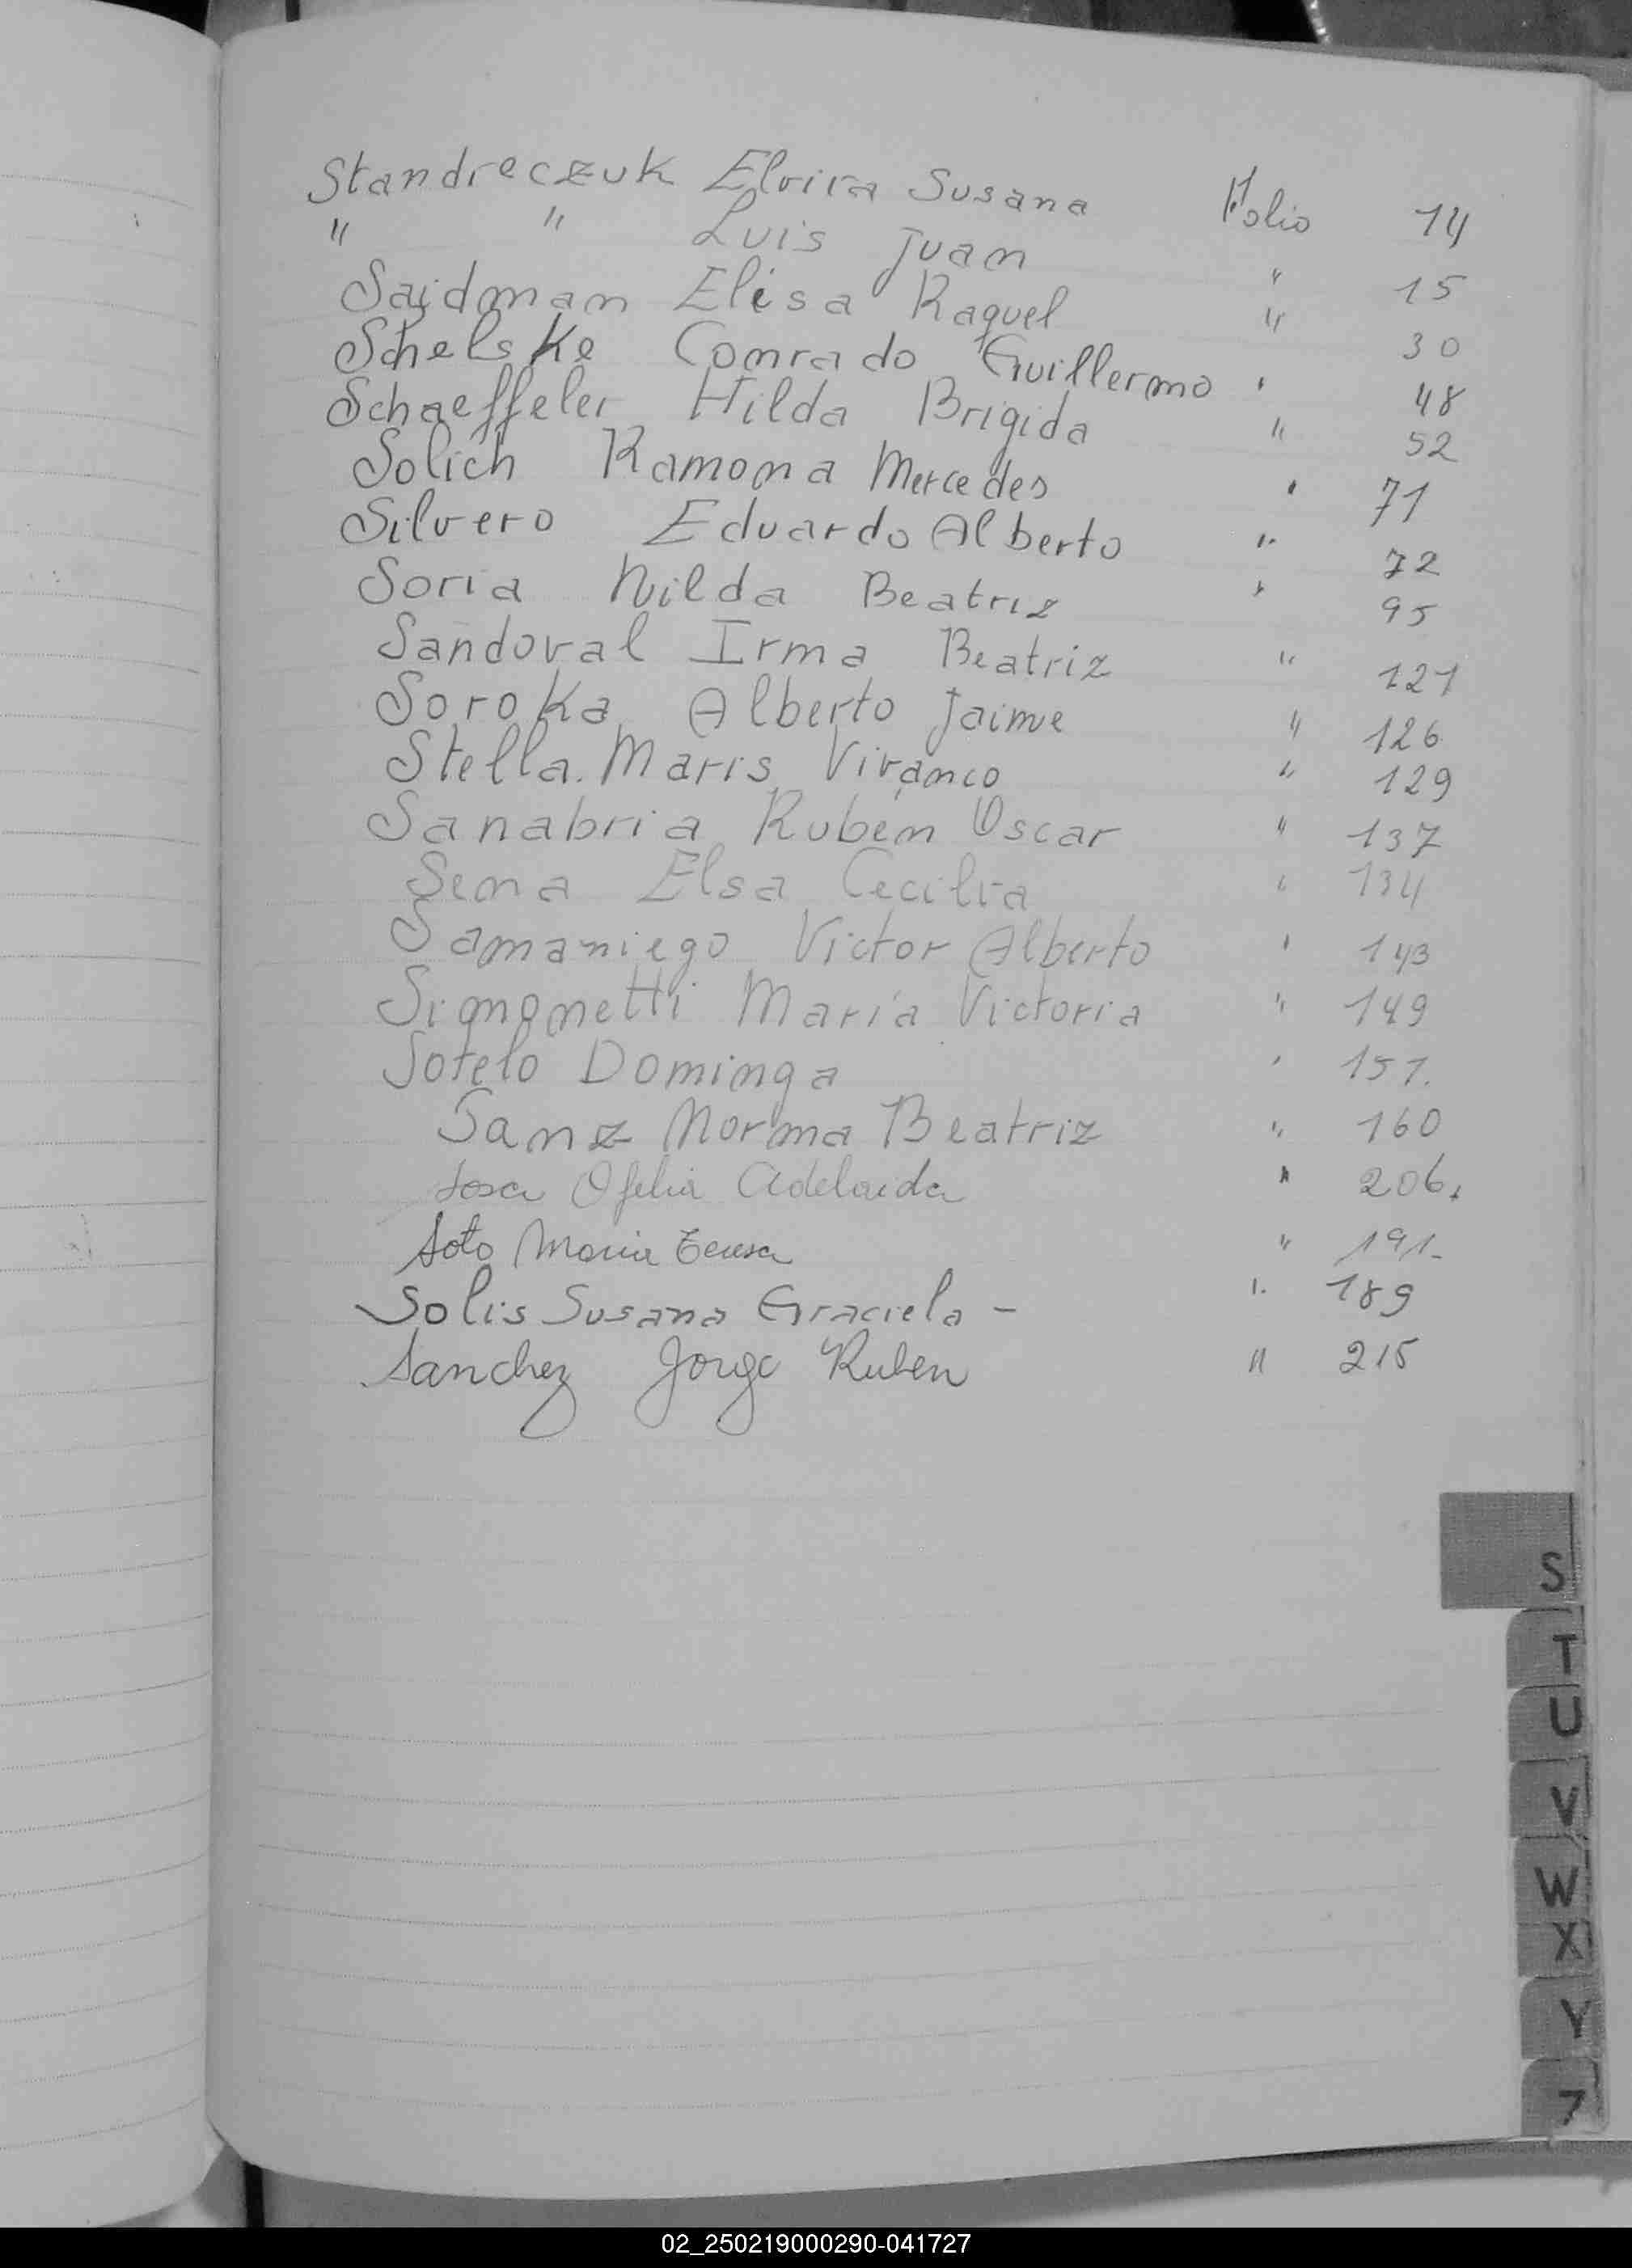 Standreczuk Elvira Susana Folio 14
" " Luis Juan " 15
Sajdman Elisa Raquel " 30
Schelske Conrado Guillermo " 48
Schaeffeler Hilda Brigida " 52
Solich Ramona Mercedes " 71
Silvero Eduardo Alberto " 72
Soria Nilda Beatriz " 95
Sandoval Irma Beatriz " 121
Soroka Alberto Jaime " 126
Stella Maris Vivanco " 129
Sanabria Rubén Oscar " 137
Sena Elsa Cecilia " 134
Samaniego Victor Alberto " 143
Simonetti María Victoria " 149
Sotelo Dominga " 151.
Sanz Norma Beatriz " 160
Sosa Ofelia Adelaida " 206.
Soto Maria Teresa " 191-
Solis Susana Graciela - " 189
Sanchez Jorge Ruben " 215
S
T
U
V
W
X
Y
Z
02_250219000290-041727